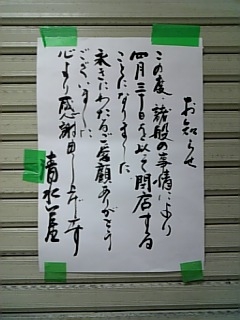 お知らせ
この度 諸般の事情により
四月三十日を以って閉店する
ことになりました
永きにわたるご愛顧ありがとう
ございました
心より感謝申し上げます
清水屋